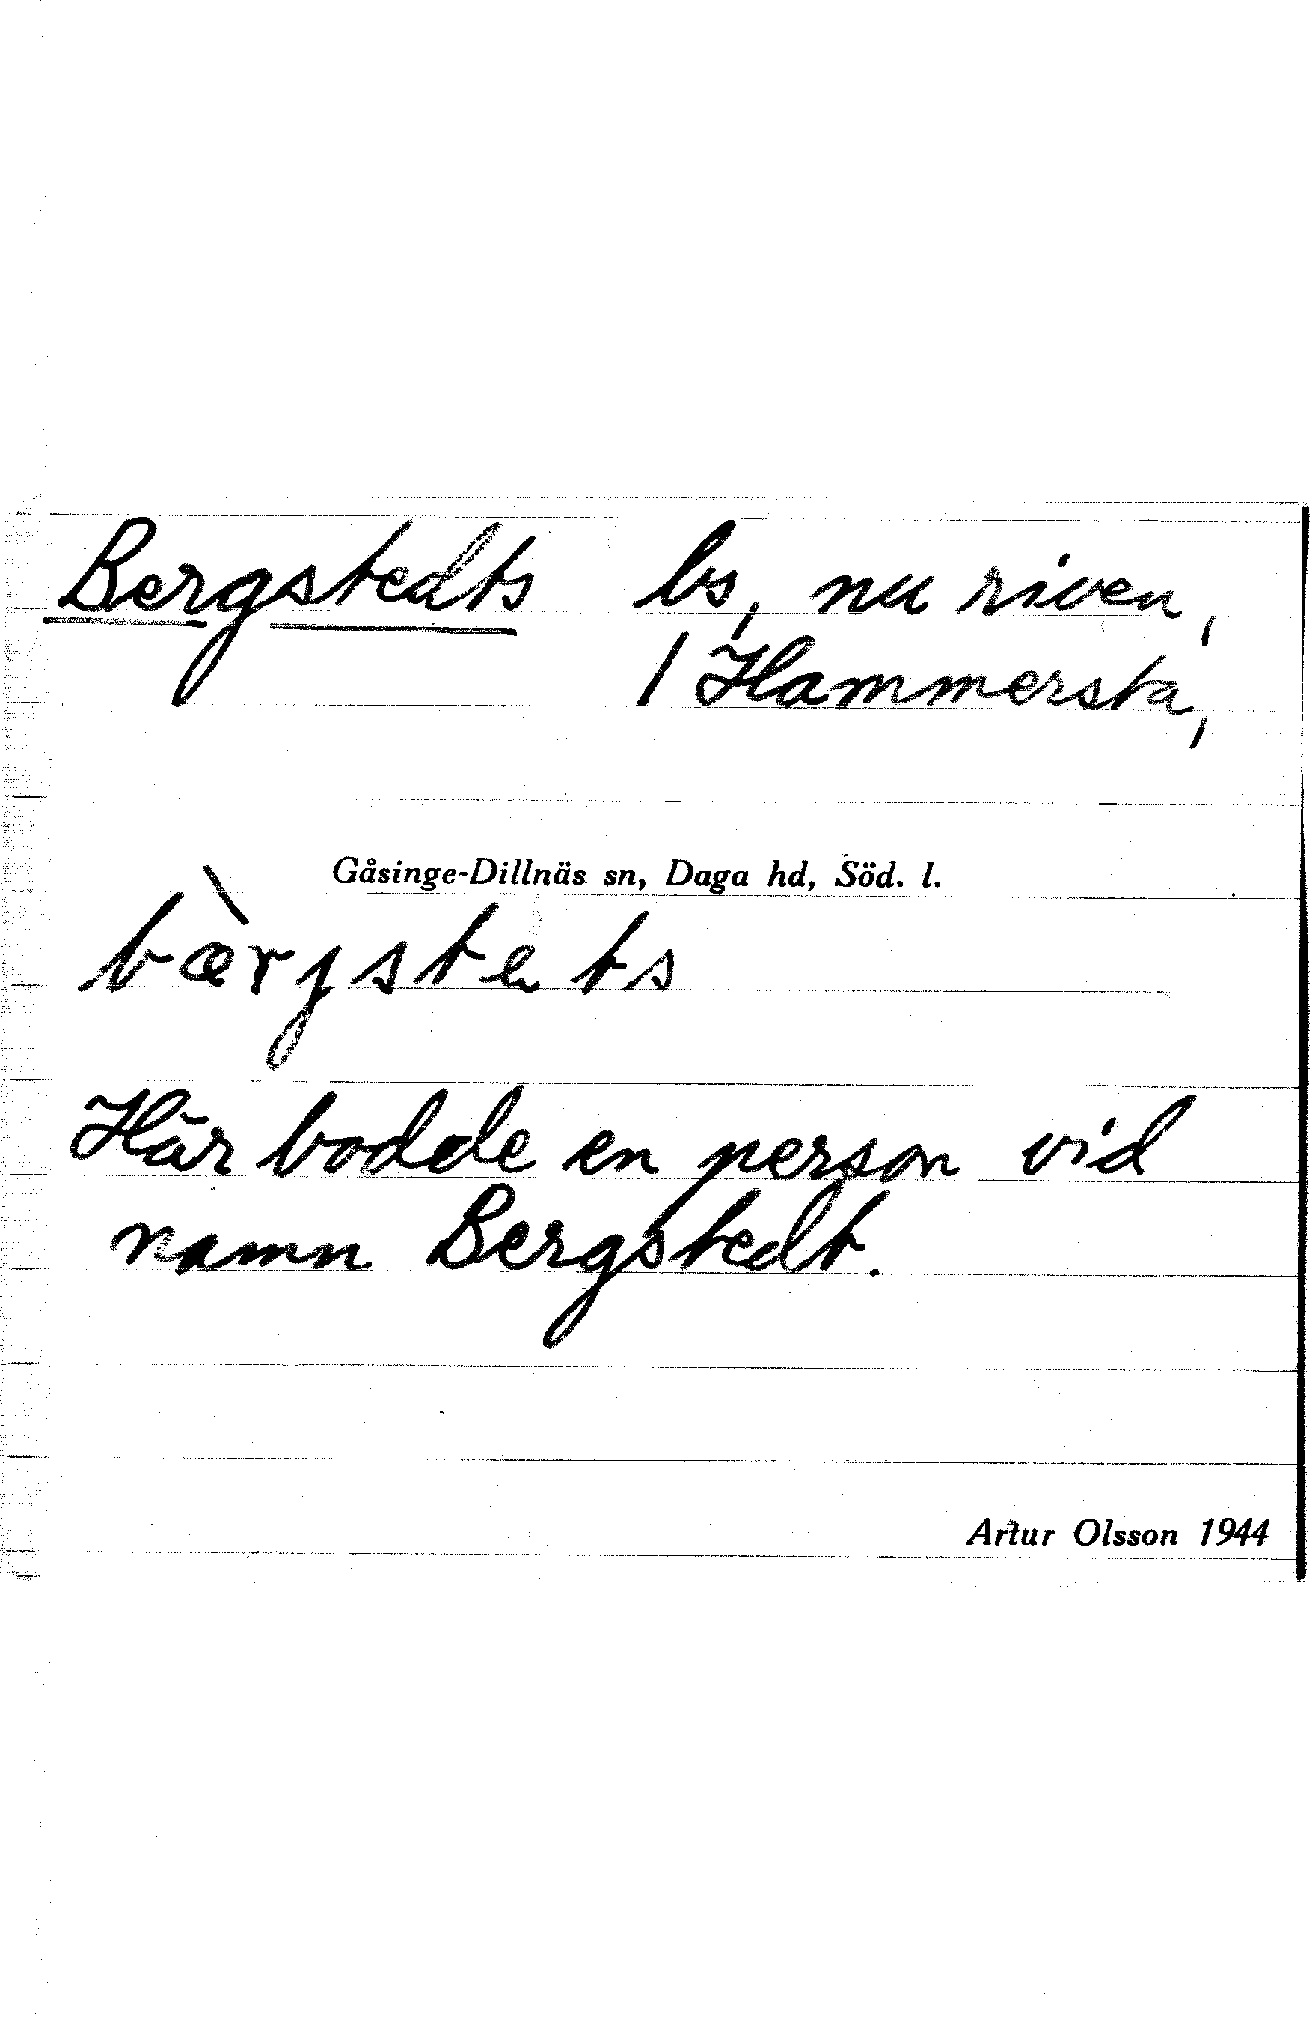 Bergstedts bs, nu riven,
/ Hammersta,
Gåsinge-Dillnäs sn, Daga hd, Söd. l.
bæ̀rjstets
Här bodde en person vid
namn Bergstedt.
Artur Olsson 1944